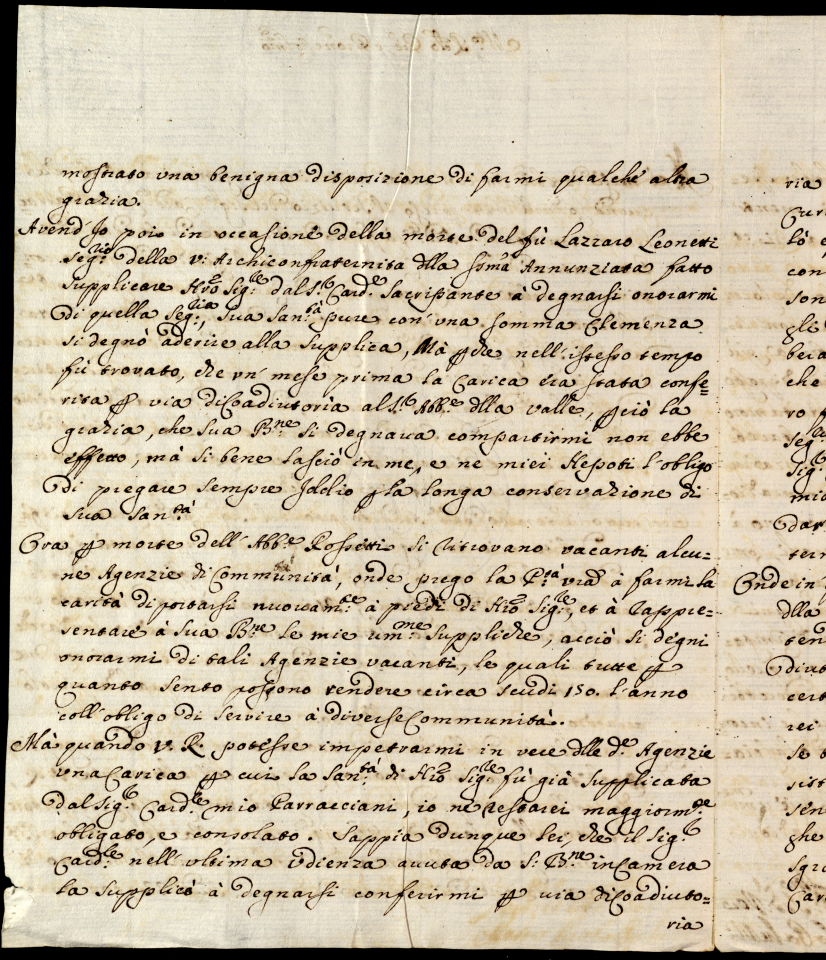 mostrato vna benigna disposizione di farmi qualche altra
grazia.
Avend'Jo poio in occasione della morte del fù Lazzaro Leonetti
Seg:rio della V: Archiconfraternita dlla Ssma Annunziata fatto
supplicare Nro Sig:re dal S.r Card.e Sacripante à degnarsi onorarmi
di quella Seg:ria, Sua San:tà pure con vna somma Clemenza
si degnò aderire alla supplica, Mà pche nell'istesso tempo
fù trovato, che vn' mese prima la Carica era stata confe=
rita p via di Coadiutoria al S.r Abb.e dlla Valle, pciò la
grazia, che Sua B.ne si degnava compartirmi non ebbe
effetto, mà si bene lasciò in me, e ne miei Nepoti l'obligo
di pregare sempre Iddio p la longa conservazione di
Sua San:tà
Ora p morte dell'Abb.e Rossetti si ritrovano vacanti alcu=
ne Agenzie di Communità, onde prego la P.tà Vra à farmi la
carità di portarsi nuovam:te à piedi di Nro Sig:re, et à rappre=
sentare à Sua B.ne le mie um:me suppliche, acciò si degni
onorarmi di tali Agenzie vacanti, le quali tutte p
quanto sento possono rendere circa scudi 150. l'anno
coll'obligo di servire à diverse Communità.
Mà quando V. R. potesse impetrarmi in vece dlle d.e Agenzie
vna Carica p cui la San:tà di Nro Sig:re fù già supplicata
dal Sig.r Card:le mio Parracciani, io ne restarei maggiorm:te
obligato, e consolato. Sappia dunque lei, che il Sig.r
Card:le nell'vltima vdienza avuta da S. B.ne in Camera
la supplicò à degnarsi conferirmi p via di Coadiuto=
ria
ria
Cur
lò e
con
son
gli
bera
che
ro p
seg
Sig.r
mia
dar
tern
Onde in
dlla
ten
divo
cert
rei
se
sist
sen
ghe
sgra
Car